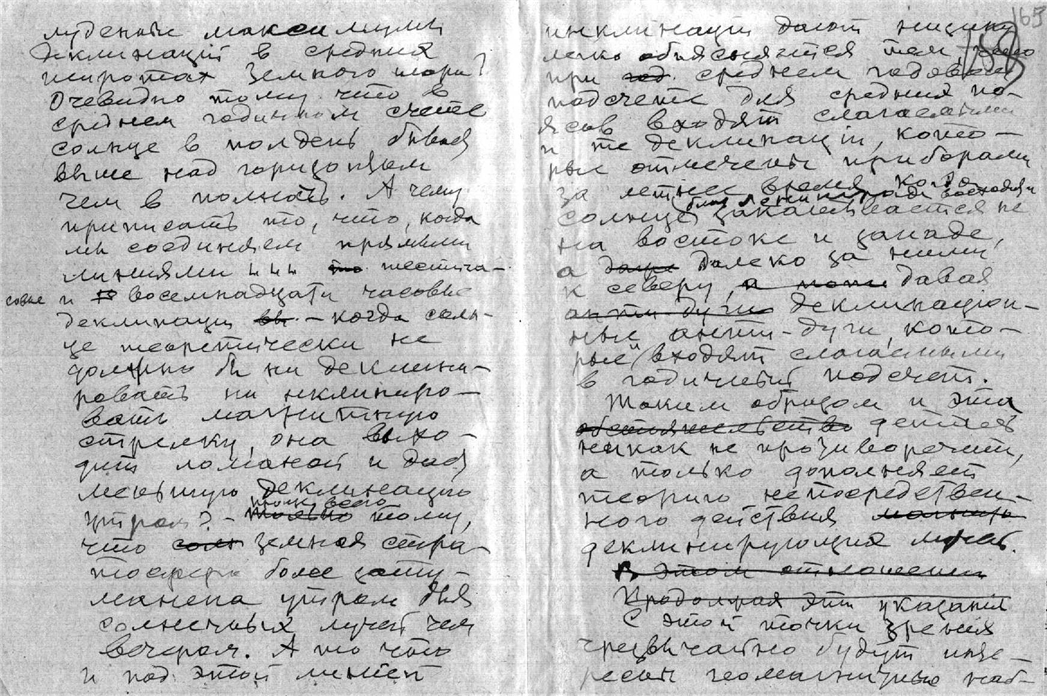 луденные максимумы
деклинаций в средних
широтах земного шара?
Очевидно тому что в
среднем годичном счете
солнце в полдень бывает
выше над горизонтом
чем в полночь. А чему
приписать то, что, когда
мы соединяем прямыми
линиями шестича-
совые и восемнадцати часовые
деклинации - когда солн-
це теоретически не
должно бы ни деклини-
ровать ни инклиниро-
вать магнитную
стрелку, она выхо-
дит ломаной и дает
меньшую деклинацию
утром? - тому,
что земная стра-
тосфера более зату-
манена утром для
солнечных лучей чем
вечером. А то что
и под этой линией
165
159
инклинации дают
легко объясняется тем, что
при среднем годовом
подсчете для средних по-
ясов входят слагаемыми
и те деклинации, кото-
рые отмечены приборами
за летнее время, когда
солнце закатывается не
на востоке и западе,
а далеко за ними
к северу, давая
деклинацион-
ные анти-дуги, кото-
рые входят слагаемыми
в годичный подсчет.
Таким образом и эта
никак не противоречит,
а только дополняет
теорию непосредствен-
ного действия
деклинирующих лучей.
В этом отношении
Продолжая эти указания
С этой точки зрения
чрезвычайно будут инте-
ресны геомагнитные наб-